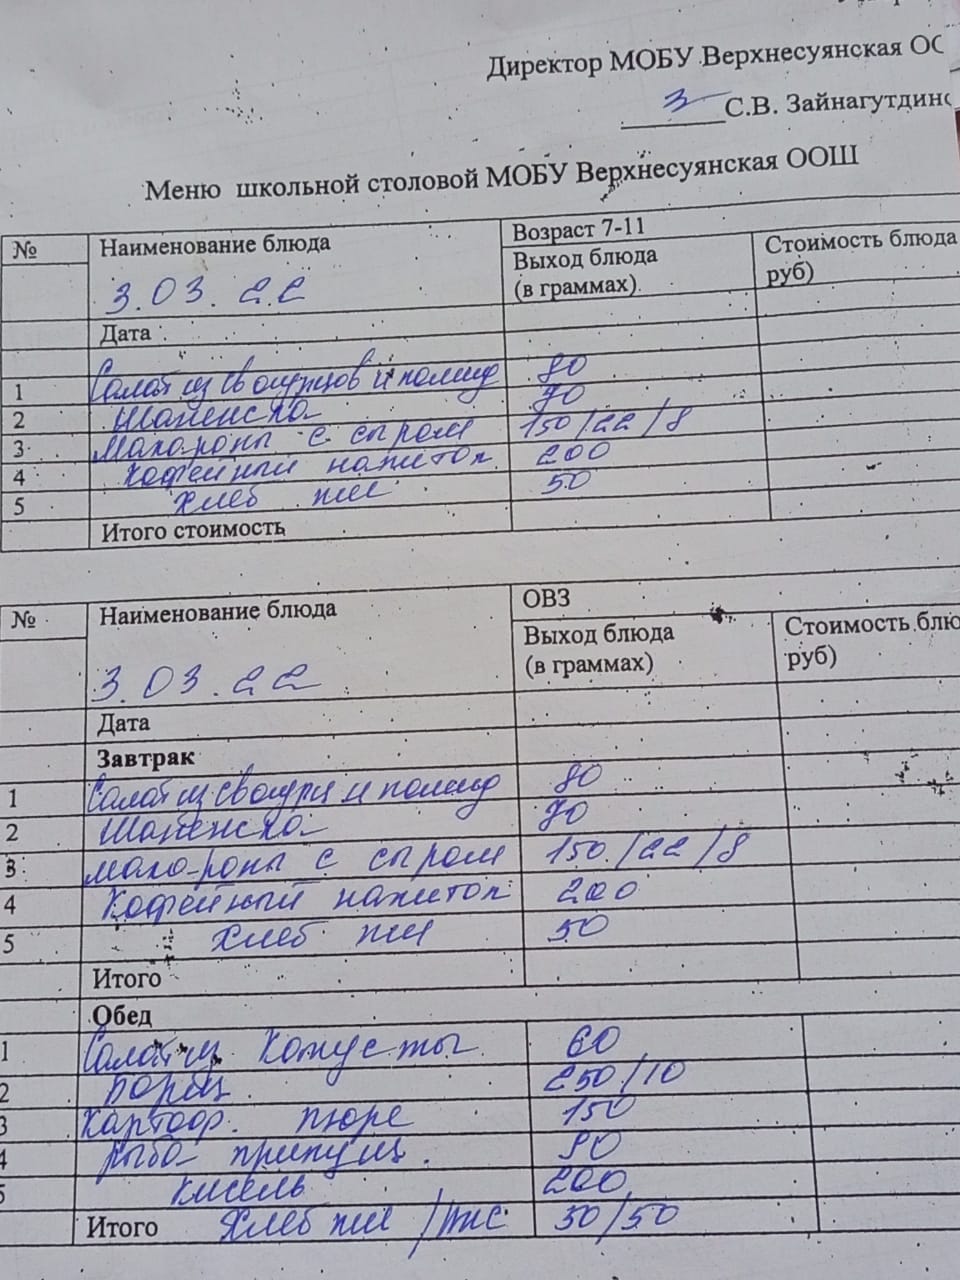 Директор МОБУ Верхнесуянская ОС
С.В. Зайнагутдино
Меню школьной столовой МОБУ Верхнесуянская ООШ
№ Наименование блюда Возраст 7-11
Выход блюда (в граммах) Стоимость блюда руб)
3.03.22
Дата
1 Салат из св огурцов и помид 80
2 Шаненска 90
3 Макароны с сыром 150/22/8
4 Кофейный напиток 200
5 Хлеб пш 50
Итого стоимость
№ Наименование блюда ОВЗ
Выход блюда (в граммах) Стоимость блю руб)
3.03.22
Дата
Завтрак
1 Салат из св огурц и помид 80
2 90
3 макароны с сыром 150/22/8
4 Кофейный напиток 200
5 Хлеб пш 50
Итого
Обед
1 Салат из капусты 60
2 борщ 250/10
3 Картоф. пюре 150
4 рыба припущ. 90
5 кисель 200
Итого Хлеб пш/рж 50/50